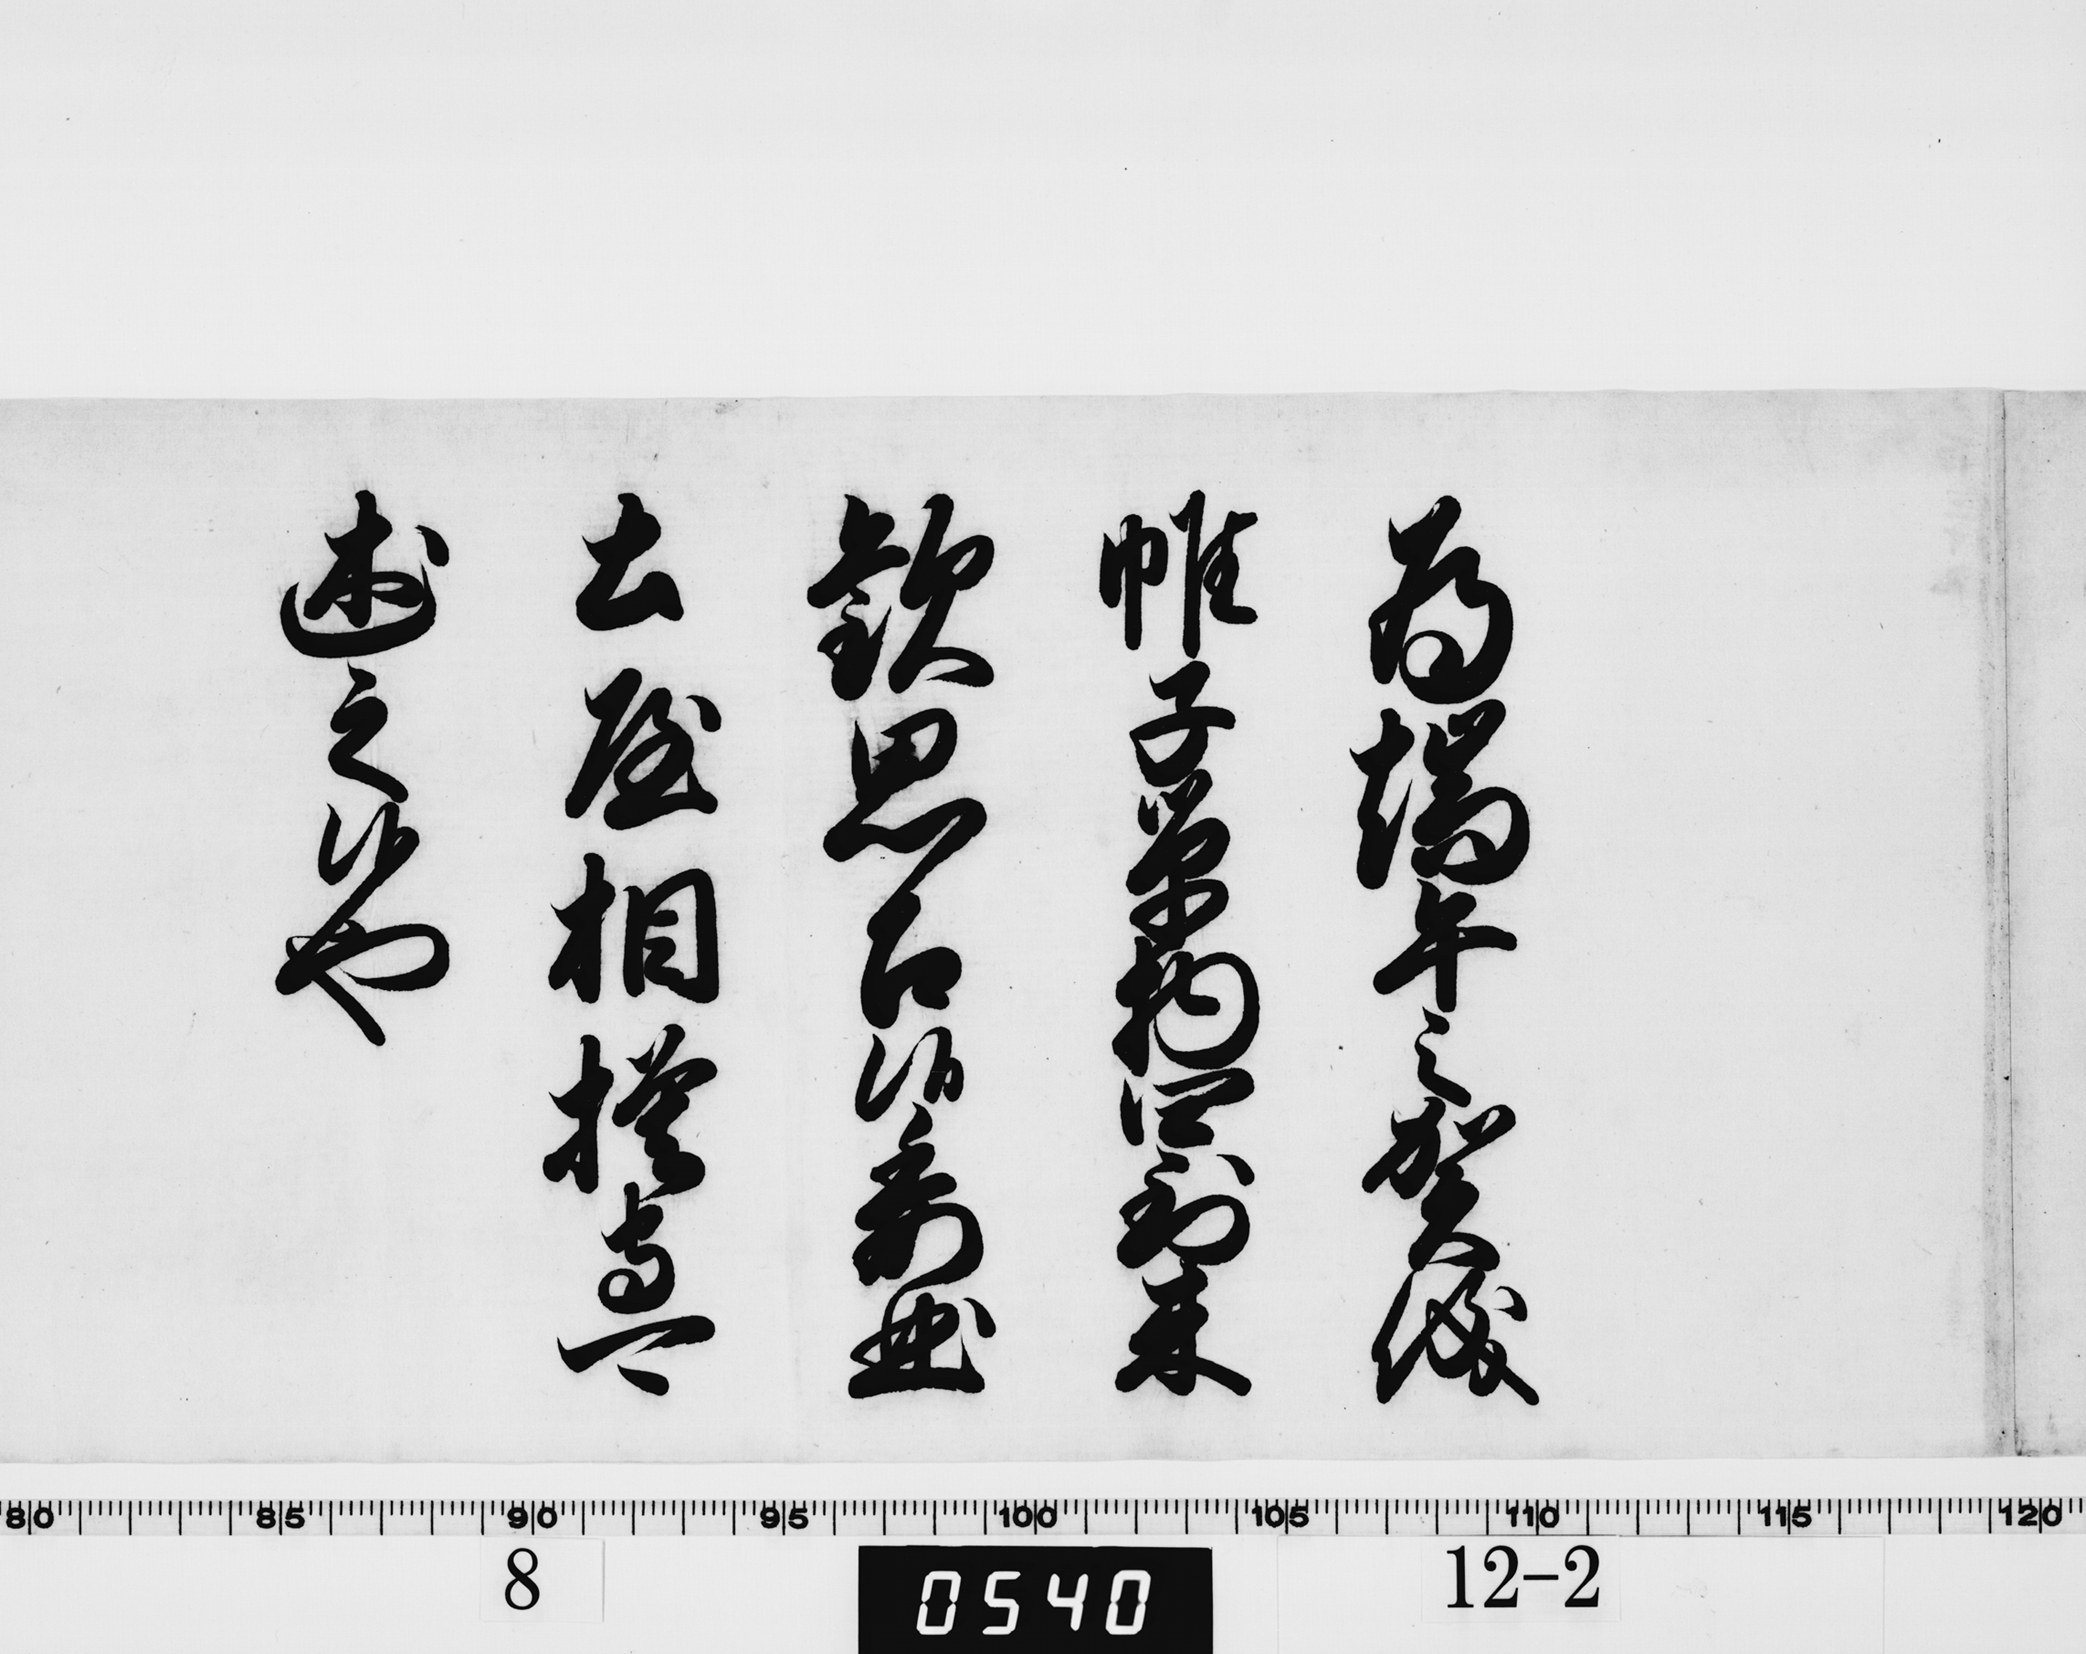 為端午之賀儀
帷子単物四到来
歓思召候委曲
土屋相模守可
述之候也
80 85 90 95 100 105 110 115 120
8 0540 12-2